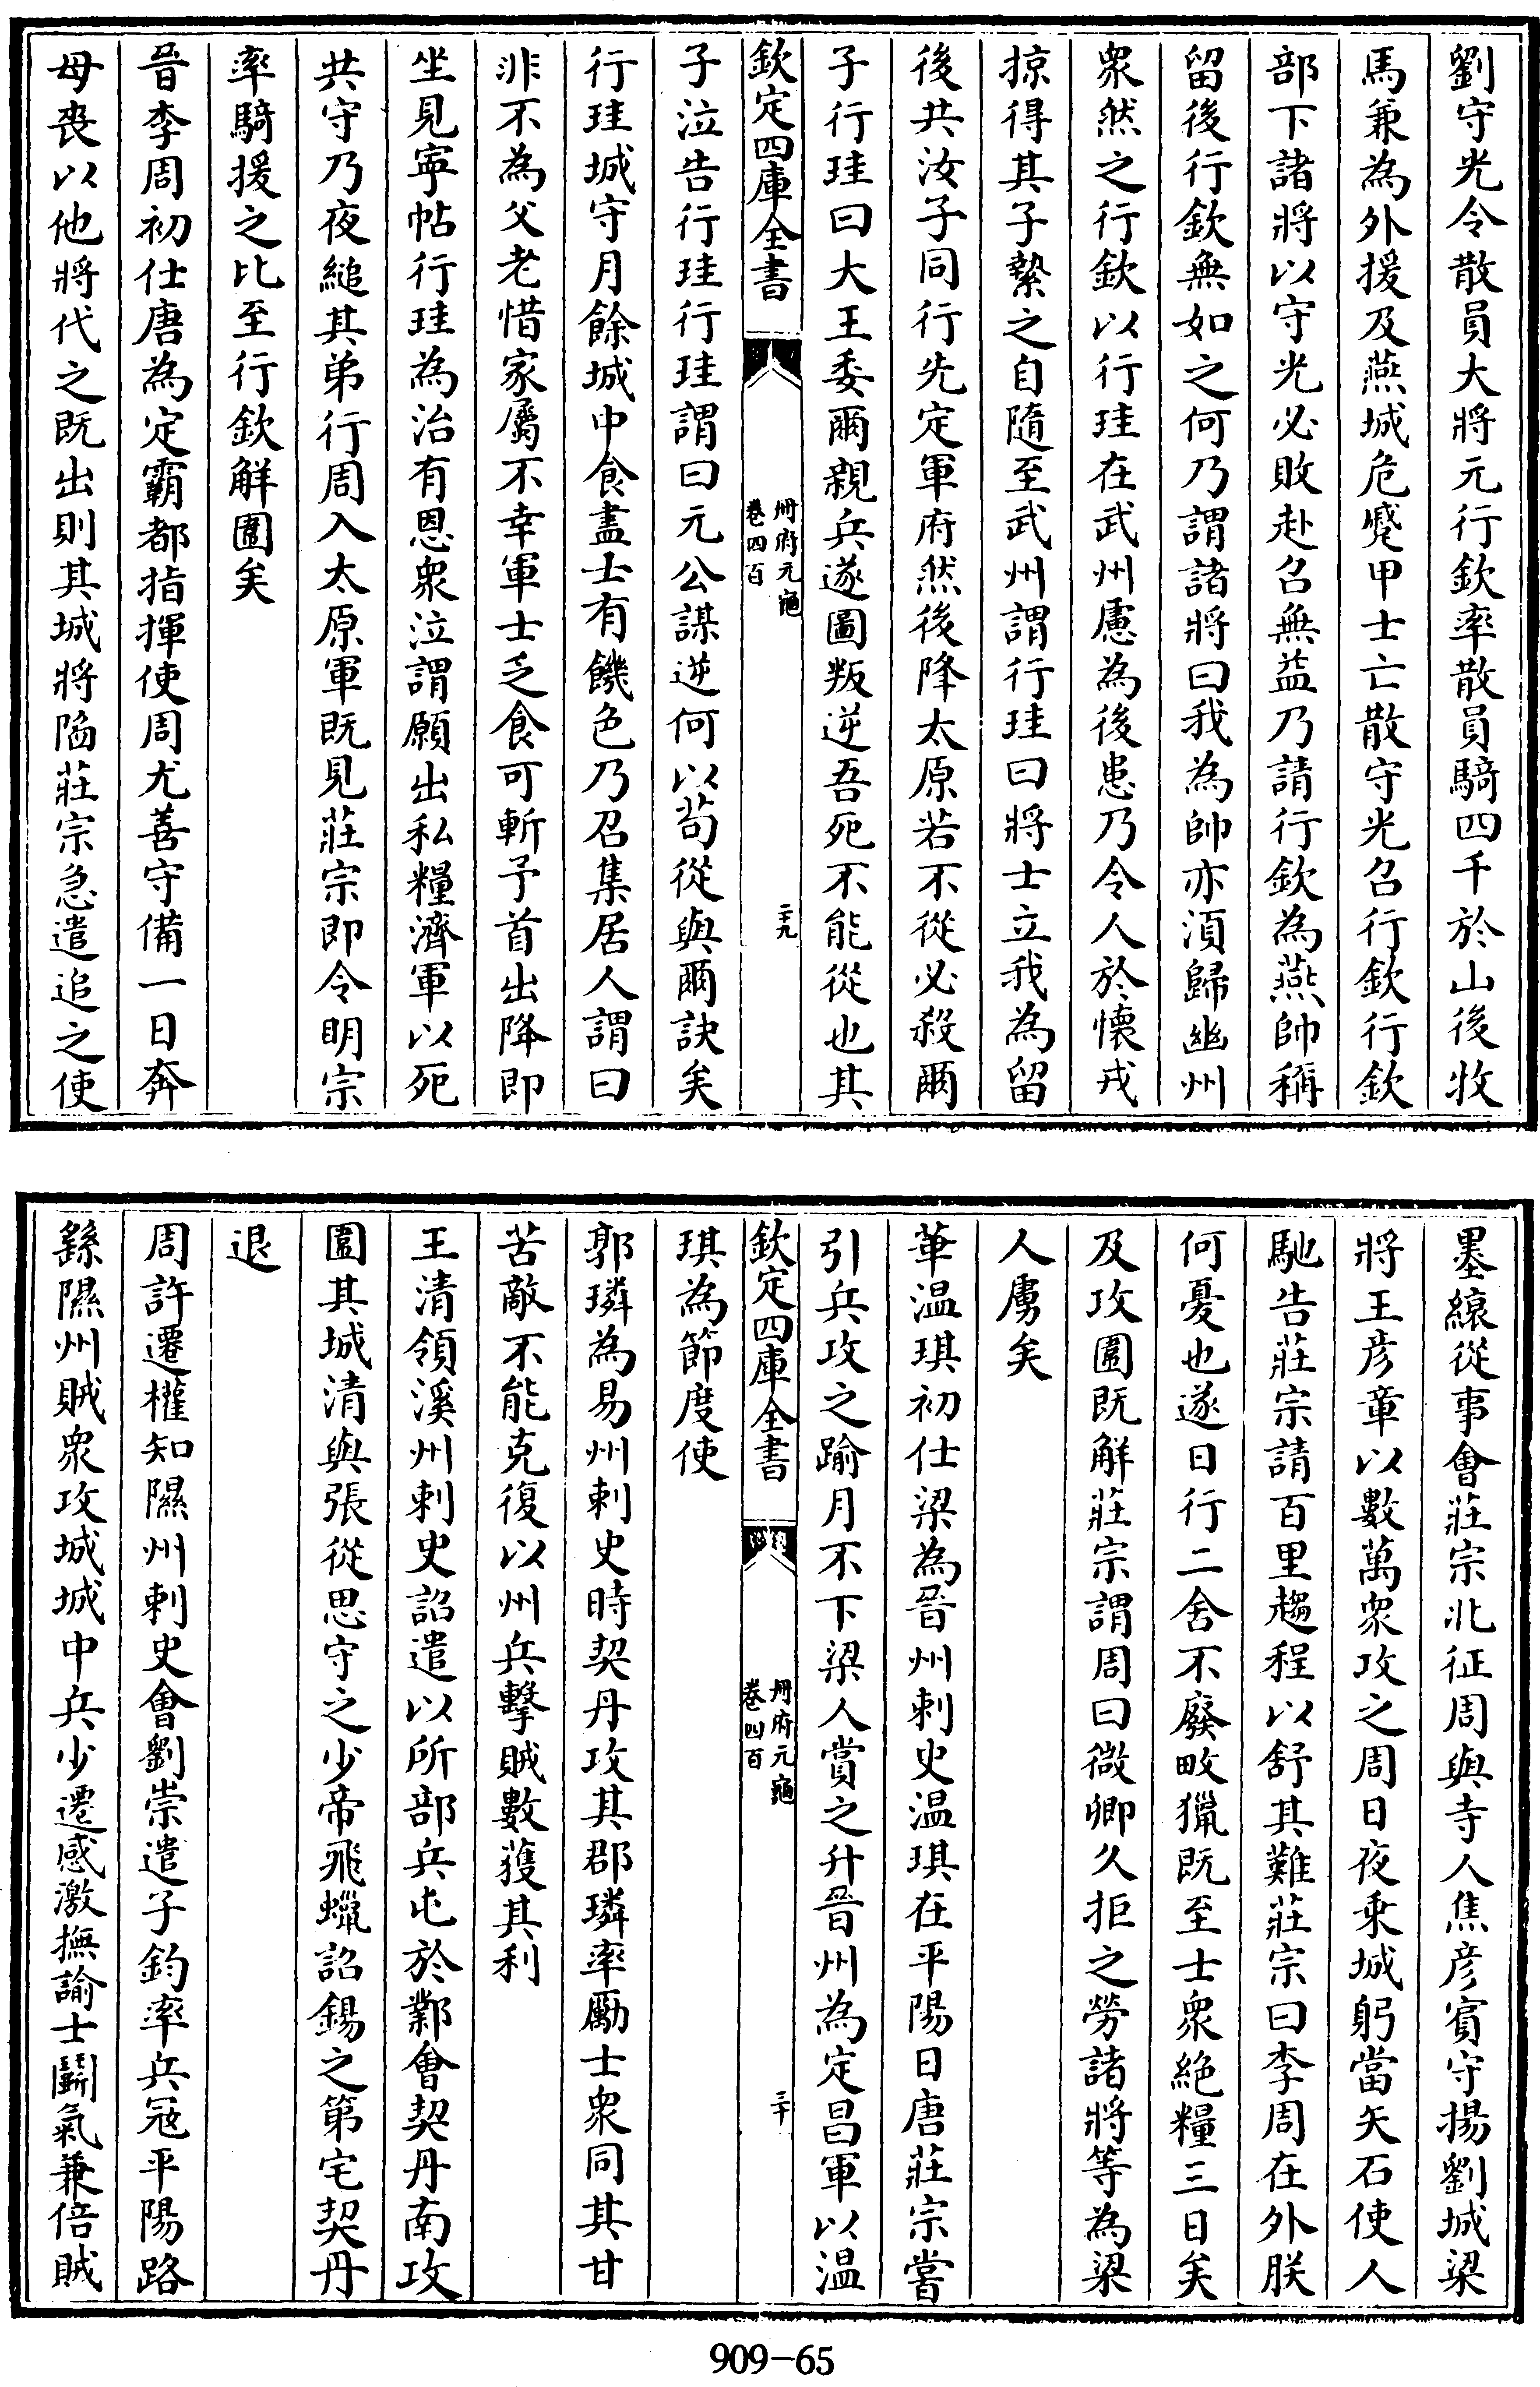 劉守光令散員大將元行欽率散員騎四千於山後牧
馬兼為外援及燕城危蹙甲士亡散守光召行欽行欽
部下諸將以守光必敗赴召無益乃請行欽為燕帥稱
留後行欽無如之何乃謂諸將曰我為帥亦須歸幽州
衆然之行欽以行珪在武州慮為後患乃令人於懷戎
掠得其子縶之自隨至武州謂行珪曰將士立我為留
後共汝子同行先定軍府然後降太原若不從必殺爾
子行珪曰大王委爾親兵遂圖叛逆吾死不能從也其
欽定四庫全書
冊府元龜
卷四百
二十九
子泣告行珪行珪謂曰元公謀逆何以茍從與爾訣矣
行珪城守月餘城中食盡士有饑色乃召集居人謂曰
非不為父老惜家屬不幸軍士乏食可斬予首出降即
坐見寧帖行珪為治有恩衆泣謂願出私糧濟軍以死
共守乃夜縋其弟行周入太原軍既見莊宗即令明宗
率騎援之比至行欽解圍矣
晉李周初仕唐為定霸都指揮使周尤善守備一日奔
母喪以他將代之既出則其城將陷莊宗急遣追之使
墨縗從事會莊宗北征周與寺人焦彦賓守揚劉城梁
將王彦章以數萬衆攻之周日夜乘城躬當矢石使人
馳告莊宗請百里趨程以舒其難莊宗曰李周在外朕
何憂也遂日行二舍不廢畋獵既至士衆絶糧三日矣
及攻圍既解莊宗謂周曰微卿久拒之勞諸將等為梁
人虜矣
華温琪初仕梁為晉州刺史温琪在平陽日唐莊宗嘗
引兵攻之踰月不下梁人賞之升晉州為定昌軍以温
欽定四庫全書
冊府元龜
卷四百
三十
琪為節度使
郭璘為易州刺史時契丹攻其郡璘率勵士衆同其甘
苦敵不能克復以州兵擊賊數獲其利
王清領溪州刺史詔遣以所部兵屯於鄴會契丹南攻
圍其城清與張從思守之少帝飛蠟詔錫之第宅契丹
退
周許遷權知隰州刺史會劉崇遣子鈞率兵冦平陽路
繇隰州賊衆攻城城中兵少遷感激撫諭士鬭氣兼倍賊
909-65